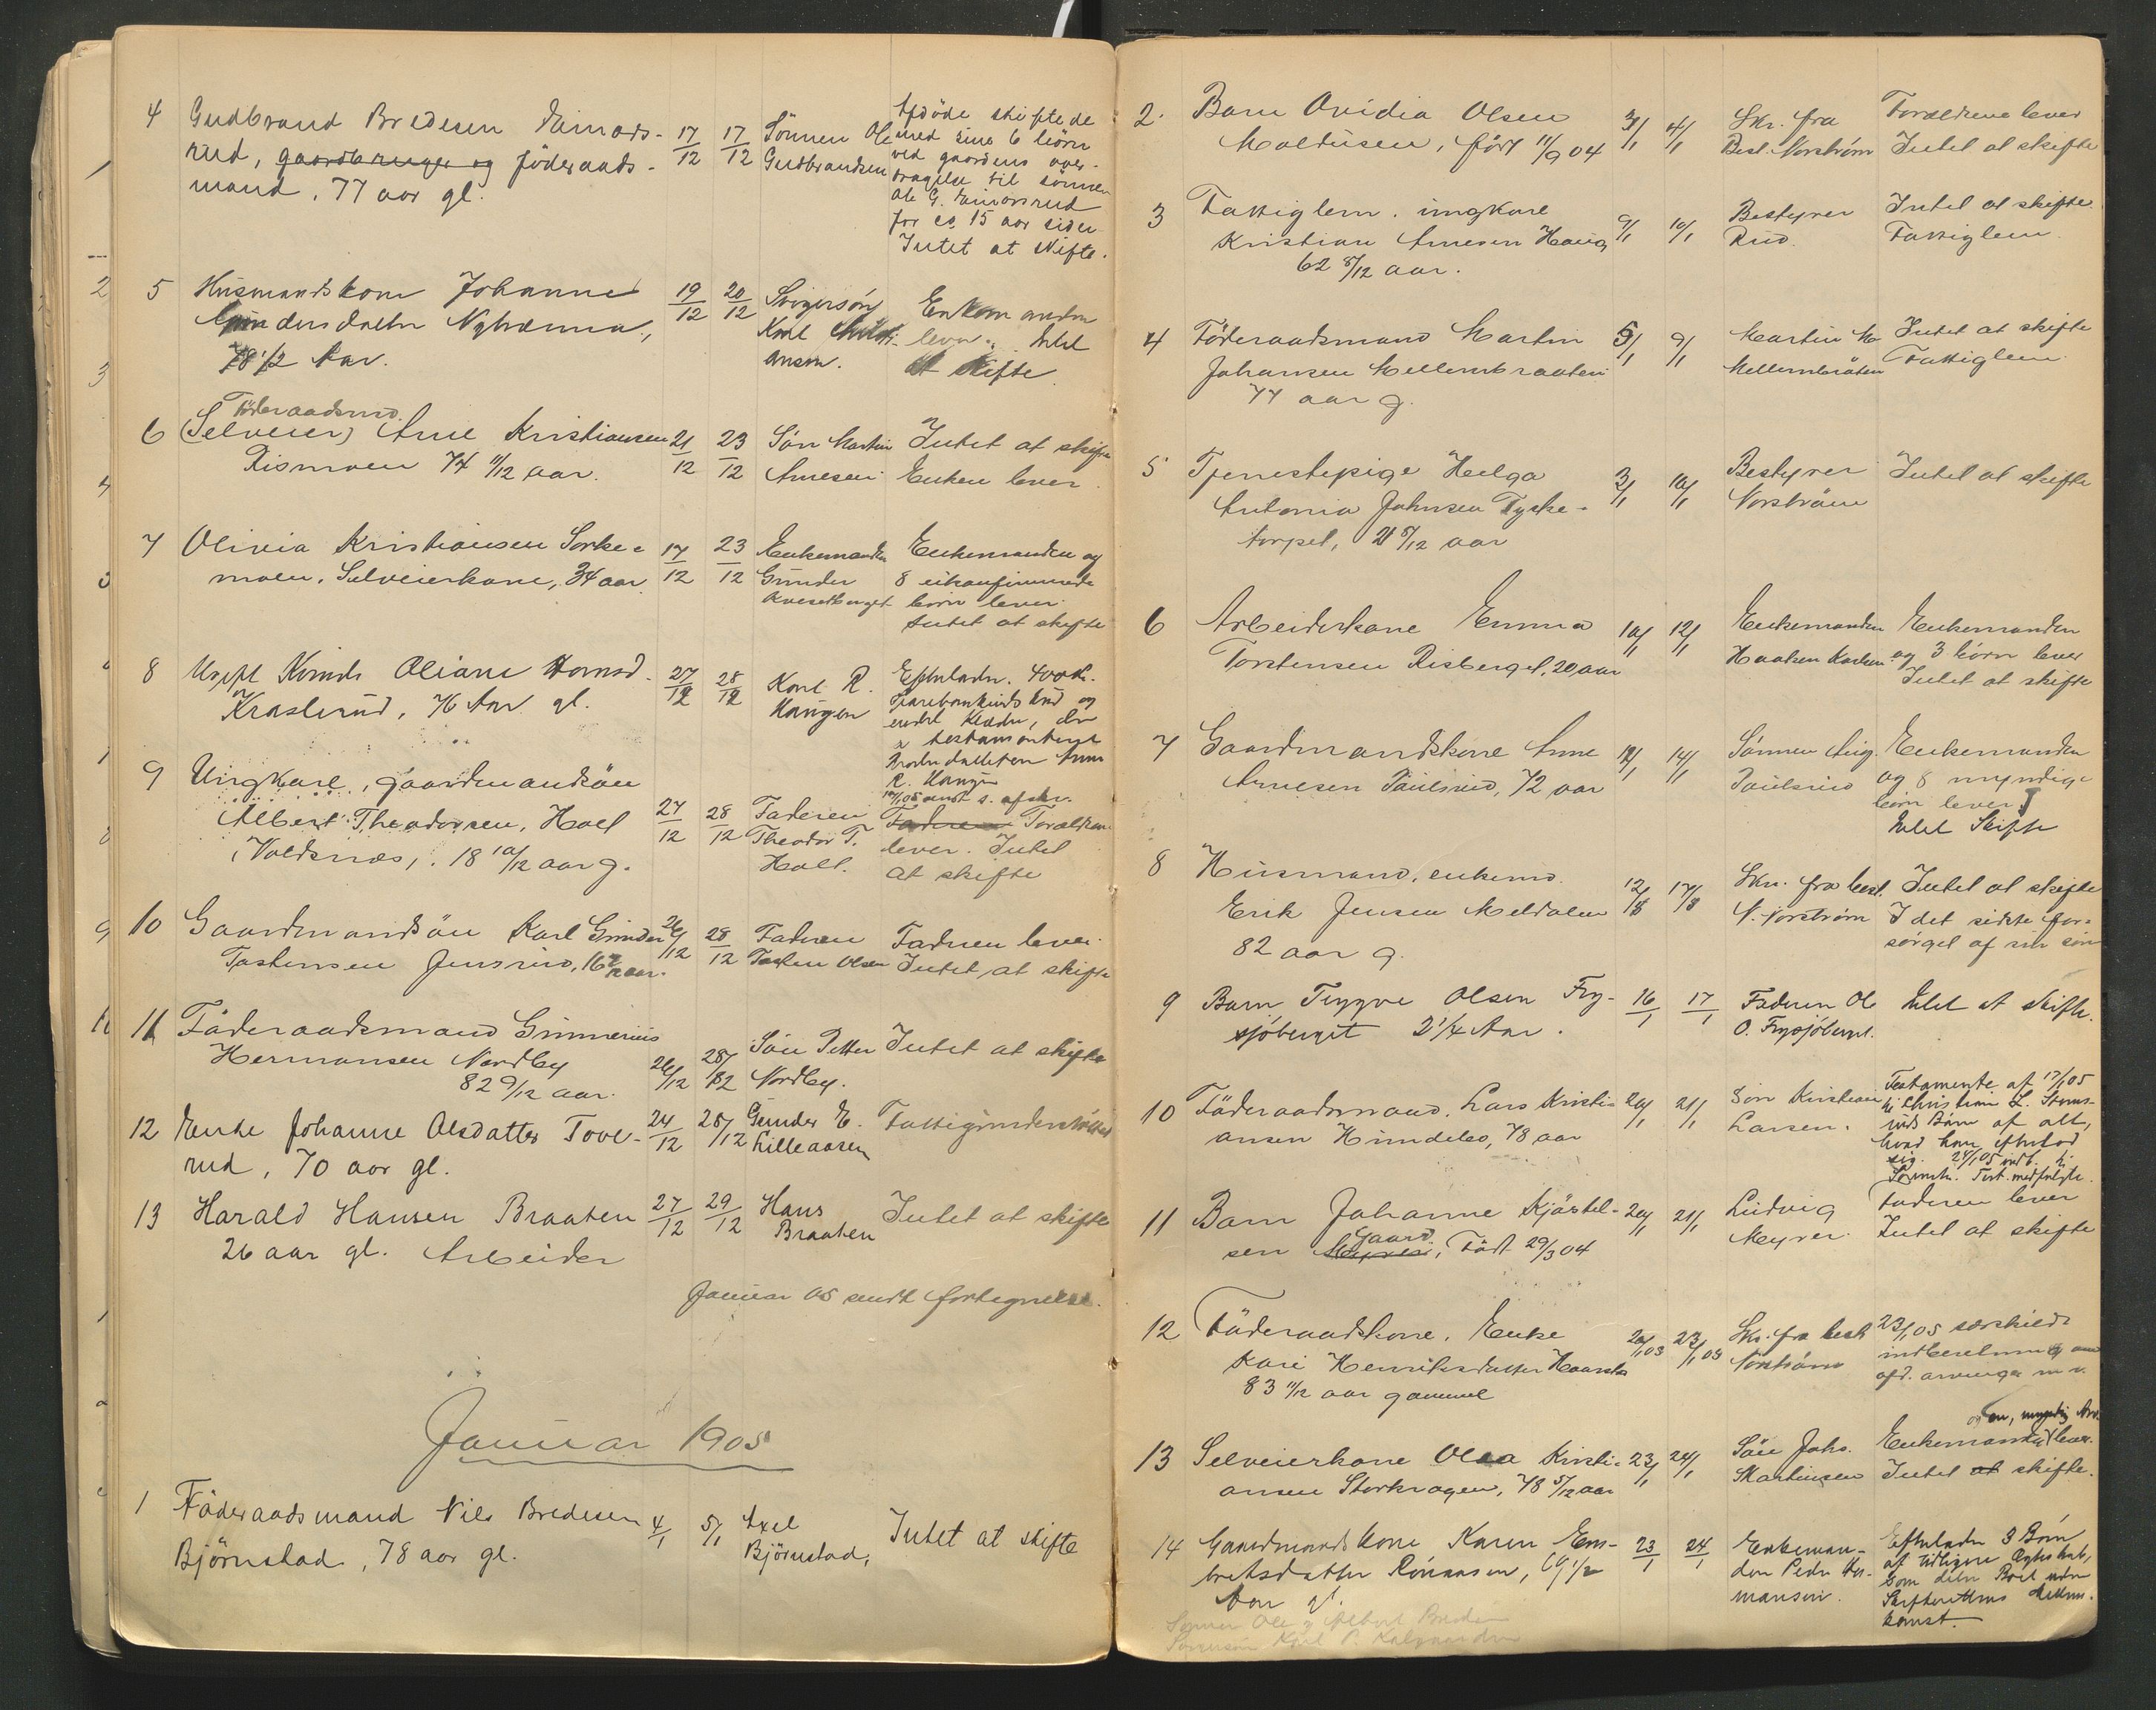 4 Gudbrand Bredesen Eimors- 17/12 17/12 Sönnen Ole Afdöde skiftede
rud, gaardbruger og föderaads- Gudbrandsen med sine 6 börn
mand, 77 aar gl. ved gaardens over-
dragelse til sönnen
Ole G. Eimorsrud
for ca. 15 aar siden
Intet at skifte.
5 Husmandskone Johanne 19/12 20/12 Svigersön Enkemanden
Gundersdatter 78 1/2 Aar. Karl lever. Intet
at skifte
Föderaadsmd.
6 (Selveier) Arne Kristiansen 21/12 23/12 Sön Martin Intet at skifte
Rismoen 74 11/12 aar. Arnesen Enken lever.
7 Olivia Kristiansen Sorke- 17/12 23/12 Enkemanden Enkemanden og
moen, Selveierkone, 34 aar Gunder 8 uikonfirmerede
börn lever.
Intet at skifte
8 Ugift Kvinde Oliane 27/12 28/12 Karl R. Efterlader 400 Kr.
Kraslerud, 76 Aar gl. Haugen Sparebankindskud og
endel Klæder, der
er testamenteret
Broderdatteren
R. Haugen
9 Ungkarl, gaardmandsön
Albert Theodorsen, Holl 27/12 28/12 Faderen Faderen Forældrene
(Voldsnæs), 18 10/12 aar g. Theodor T. lever. Intet
Holl. at skifte
10 Gaardmandsön Karl Gunder 26/12 28/12 Faderen Faderen lever.
Jensrud, 16 aar. Olsen Intet at skifte
11 Föderaadsmand Gunnerius Sön Petter Intet at skifte
Hermansen Nordby 26/12 28/12 Nordby.
82 9/12 aar.
12 Enke Johanne Olsdatter Tove- 24/12 28/12 Gunder E. Fattigunderstöttet
rud, 70 aar gl. Lilleaasen
13 Harald Hansen Braaten 27/12 29/12 Hans Intet at skifte
26 aar gl. Arbeider Braaten
Januar 05 sendt fortegnelse.
Januar 1905
1 Föderaadsmand Nils Bredesen 4/1 5/1 Axel Intet at skifte
Björnstad, 78 aar gl. Björnstad,
2. Barn Ovidia Olsen 3/1 4/1 Skr. fra Forældrene lever
født 11/9 04 Best. Norström Intet at skifte
3 Fattiglem, ungkarl 9/1 10/1 Bestyrer Intet at skifte.
Kristian Arnesen Haug Rud. Fattiglem
62 8/12 aar.
4 Föderaadsmand Martin 5/1 9/1 Martin Intet at skifte
Johansen Mellembraaten Mellembråten Fattiglem.
77 aar g.
5 Tjenestepige Helga 3/1 10/1 Bestyrer Intet at skifte
Antonia Johnsen Tyske- Norström
torpet, 21 5/12 aar
6 Arbeiderkone Emma 10/1 12/1 Enkemanden Enkemanden
Torstensen Risberget, 20 aar Haaken Karlsen og 3 börn lever
Intet at skifte
7 Gaardmandskone Anne 12/1 14/1 Sönnen Aug. Enkemanden
Arnesen Paulsrud, 72 aar Paulsrud og 8 myndige
börn lever
Intet Skifte
8 Husmand, enkemd. 12/1 17/1 Skr. fra best. Intet at skifte
Erik Jensen Meldalen N. Norström I det sidste for-
82 aar g. sörget af sin sön
9 Barn Trygve Olsen Fry- 16/1 17/1 Faderen Ole Intet at Skifte.
sjöberget 2 1/4 Aar. O. Frysjöberget.
10 Föderaadsmand Lars Kristi- 20/1 21/1 Sön Kristian Testamente af 17/1 05
ansen Hundelos, 78 aar Larsen. til Christian L.
Börn af alt,
hvad han efterlod
sig. 24/1 05 indb. til
Sorenskr. Test. medfulgte.
11 Barn Johanne Kjöstel- 20/1 21/1 Ludvig Faderen lever
Gaard
sen, Född 29/3 04 Meyrer. Intet at skifte
12 Föderaadskone, Enke 20/1 05 23/1 05 Skr. fra best. 23/1 05 særskildt
Kari Henriksdatter Norström indberetning om
83 11/12 aar gammel afd. arvinger m. v.
13 Selveierkone Olea Kristi- 23/1 24/1 Sön Johs. Enkemanden lever.
ansen Storkragen, 78 5/12 aar Martinsen Intet at skifte.
14 Gaardmandskone Karen Em- 23/1 24/1 Enkeman- Efterlader 3 Börn
bretsdatter 69 1/2 den Peder Her- af tidligere Ægteskab,
Aar gl. mansen. som deler Boet uden
Skifterettens Mellem-
komst.